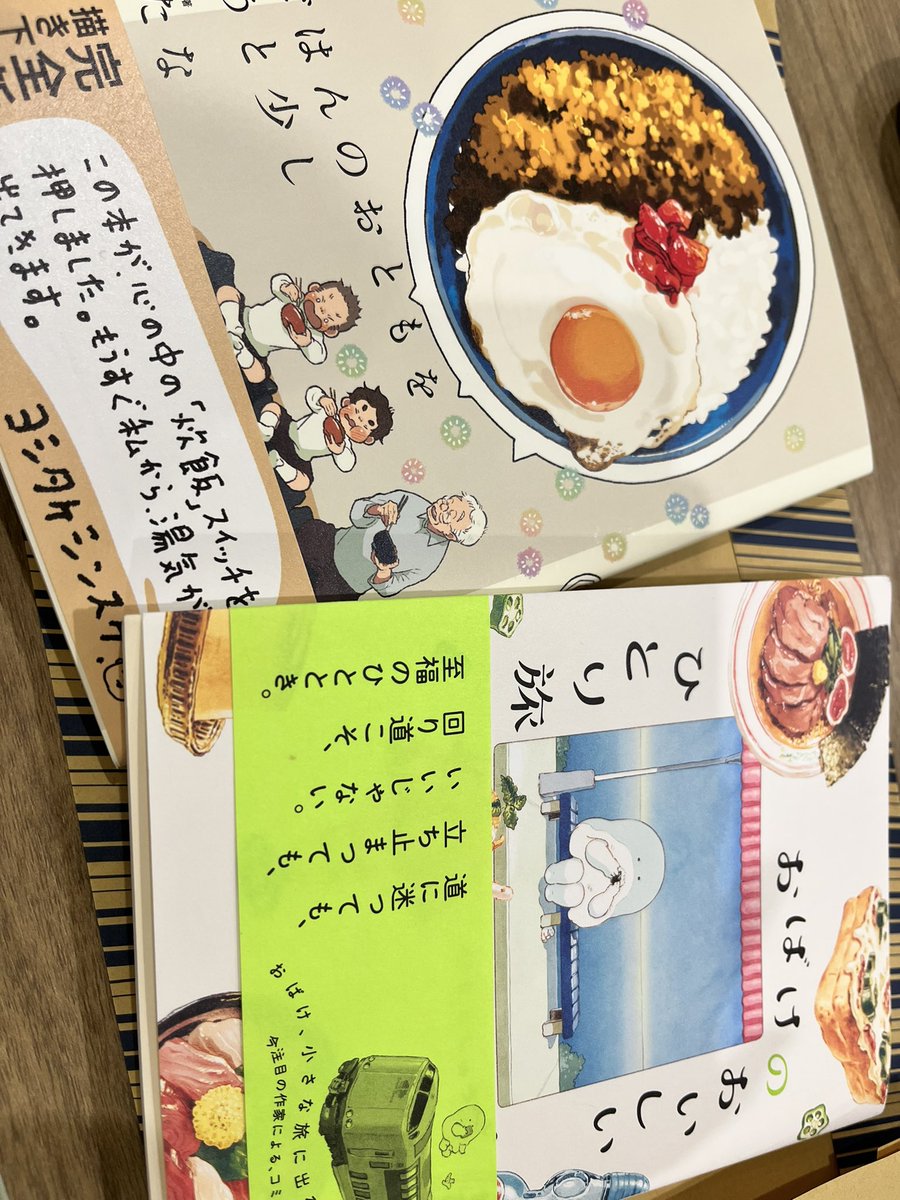 はんのおともを
と少し
な
完全
描き下
この本が、心の中の「炊飯」スイッチを
押しました。もうすぐ私から、湯気が
出てきます。
ヨシタケシンスケ
おばけの
おいしい
ひとり旅
道に迷っても、
立ち止まっても、
いいじゃない。
回り道こそ、
至福のひととき。
おばけ、小さな旅に出
今注目の作家による、コミ